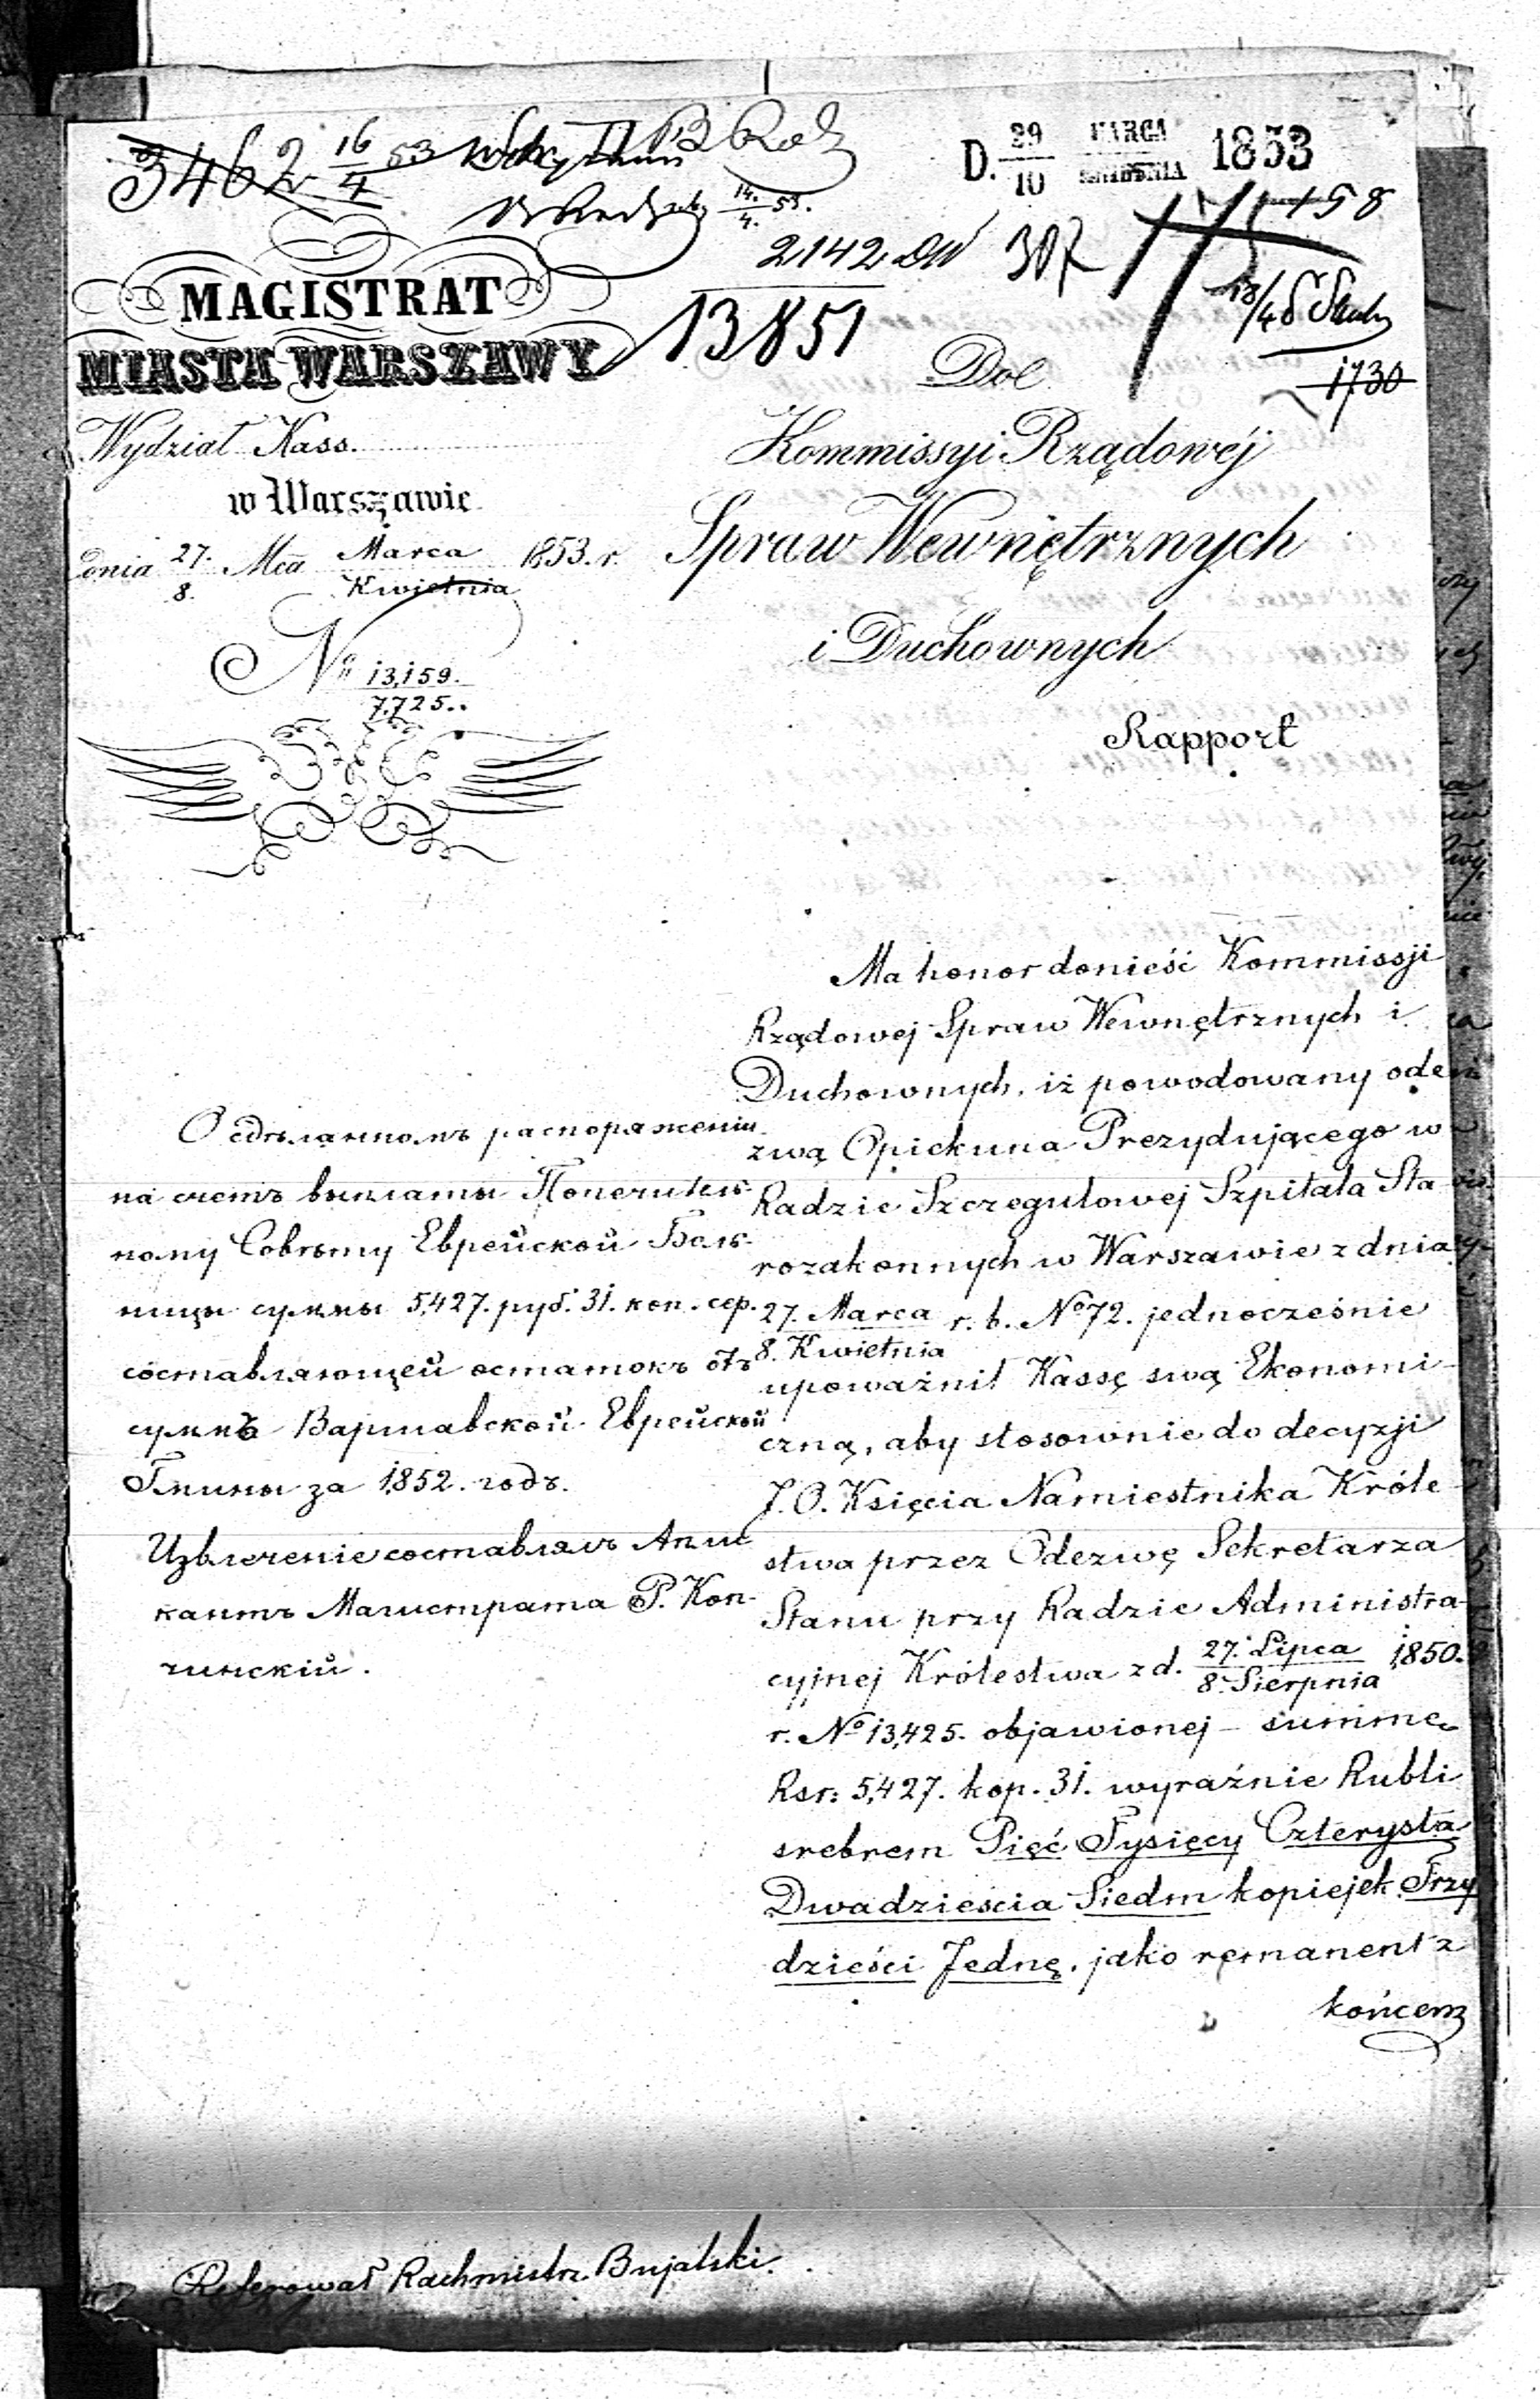 3462 16/4 53
D. 29/10 MARCA KWIETNIA 1853
14./4. 53.
158
2142 DW 307
13851
1730
MAGISTRAT
MIASTA WARSZAWY
Wydział Kass.
w Warszawie
dnia 27./8. Mca Marca/Kwietnia 1853. r.
No 13,159.
7,725.
Do
Kommissyi Rządowéj
Spraw Wewnętrznych
i Duchownych
Rapport
О сдѣланномъ распоряженіи
на счетъ выплаты Попечитель-
ному Совѣту Еврейской Боль-
ницы суммы 5,427. руб. 31. коп. сер.
составляющей остатокъ отъ
суммъ Варшавской Еврейской
Гмины за 1852. годъ.
Извлеченіе составлялъ Апли
кантъ Магистрата Р. Коп-
чинскій.
Ma honor donieść Kommissji
Rządowej Spraw Wewnętrznych i
Duchownych, iż powodowany ode
zwą Opiekuna Prezydującego w
Radzie Szczegułowej Szpitala Sta
rozakonnych w Warszawie z dnia
27. Marca/8. Kwietnia r. b. No 72. jednocześnie
upoważnił Kassę swą Ekonomi-
czną, aby stosownie do decyzji
J. O. Księcia Namiestnika Króle
stwa przez Odezwę Sekretarza
Stanu przy Radzie Administra-
cyjnej Królestwa z d. 27. Lipca/8. Sierpnia 1850.
r. No 13,425. objawionej – summę
Rsr: 5,427. kop. 31. wyraźnie Rubli
srebrem Pięć Tysięcy Czterysta
Dwadzieścia Siedm kopiejek Trzy
dzieści Jednę, jako remanent z
końcem
Referował Rachmistrz Bujalski.